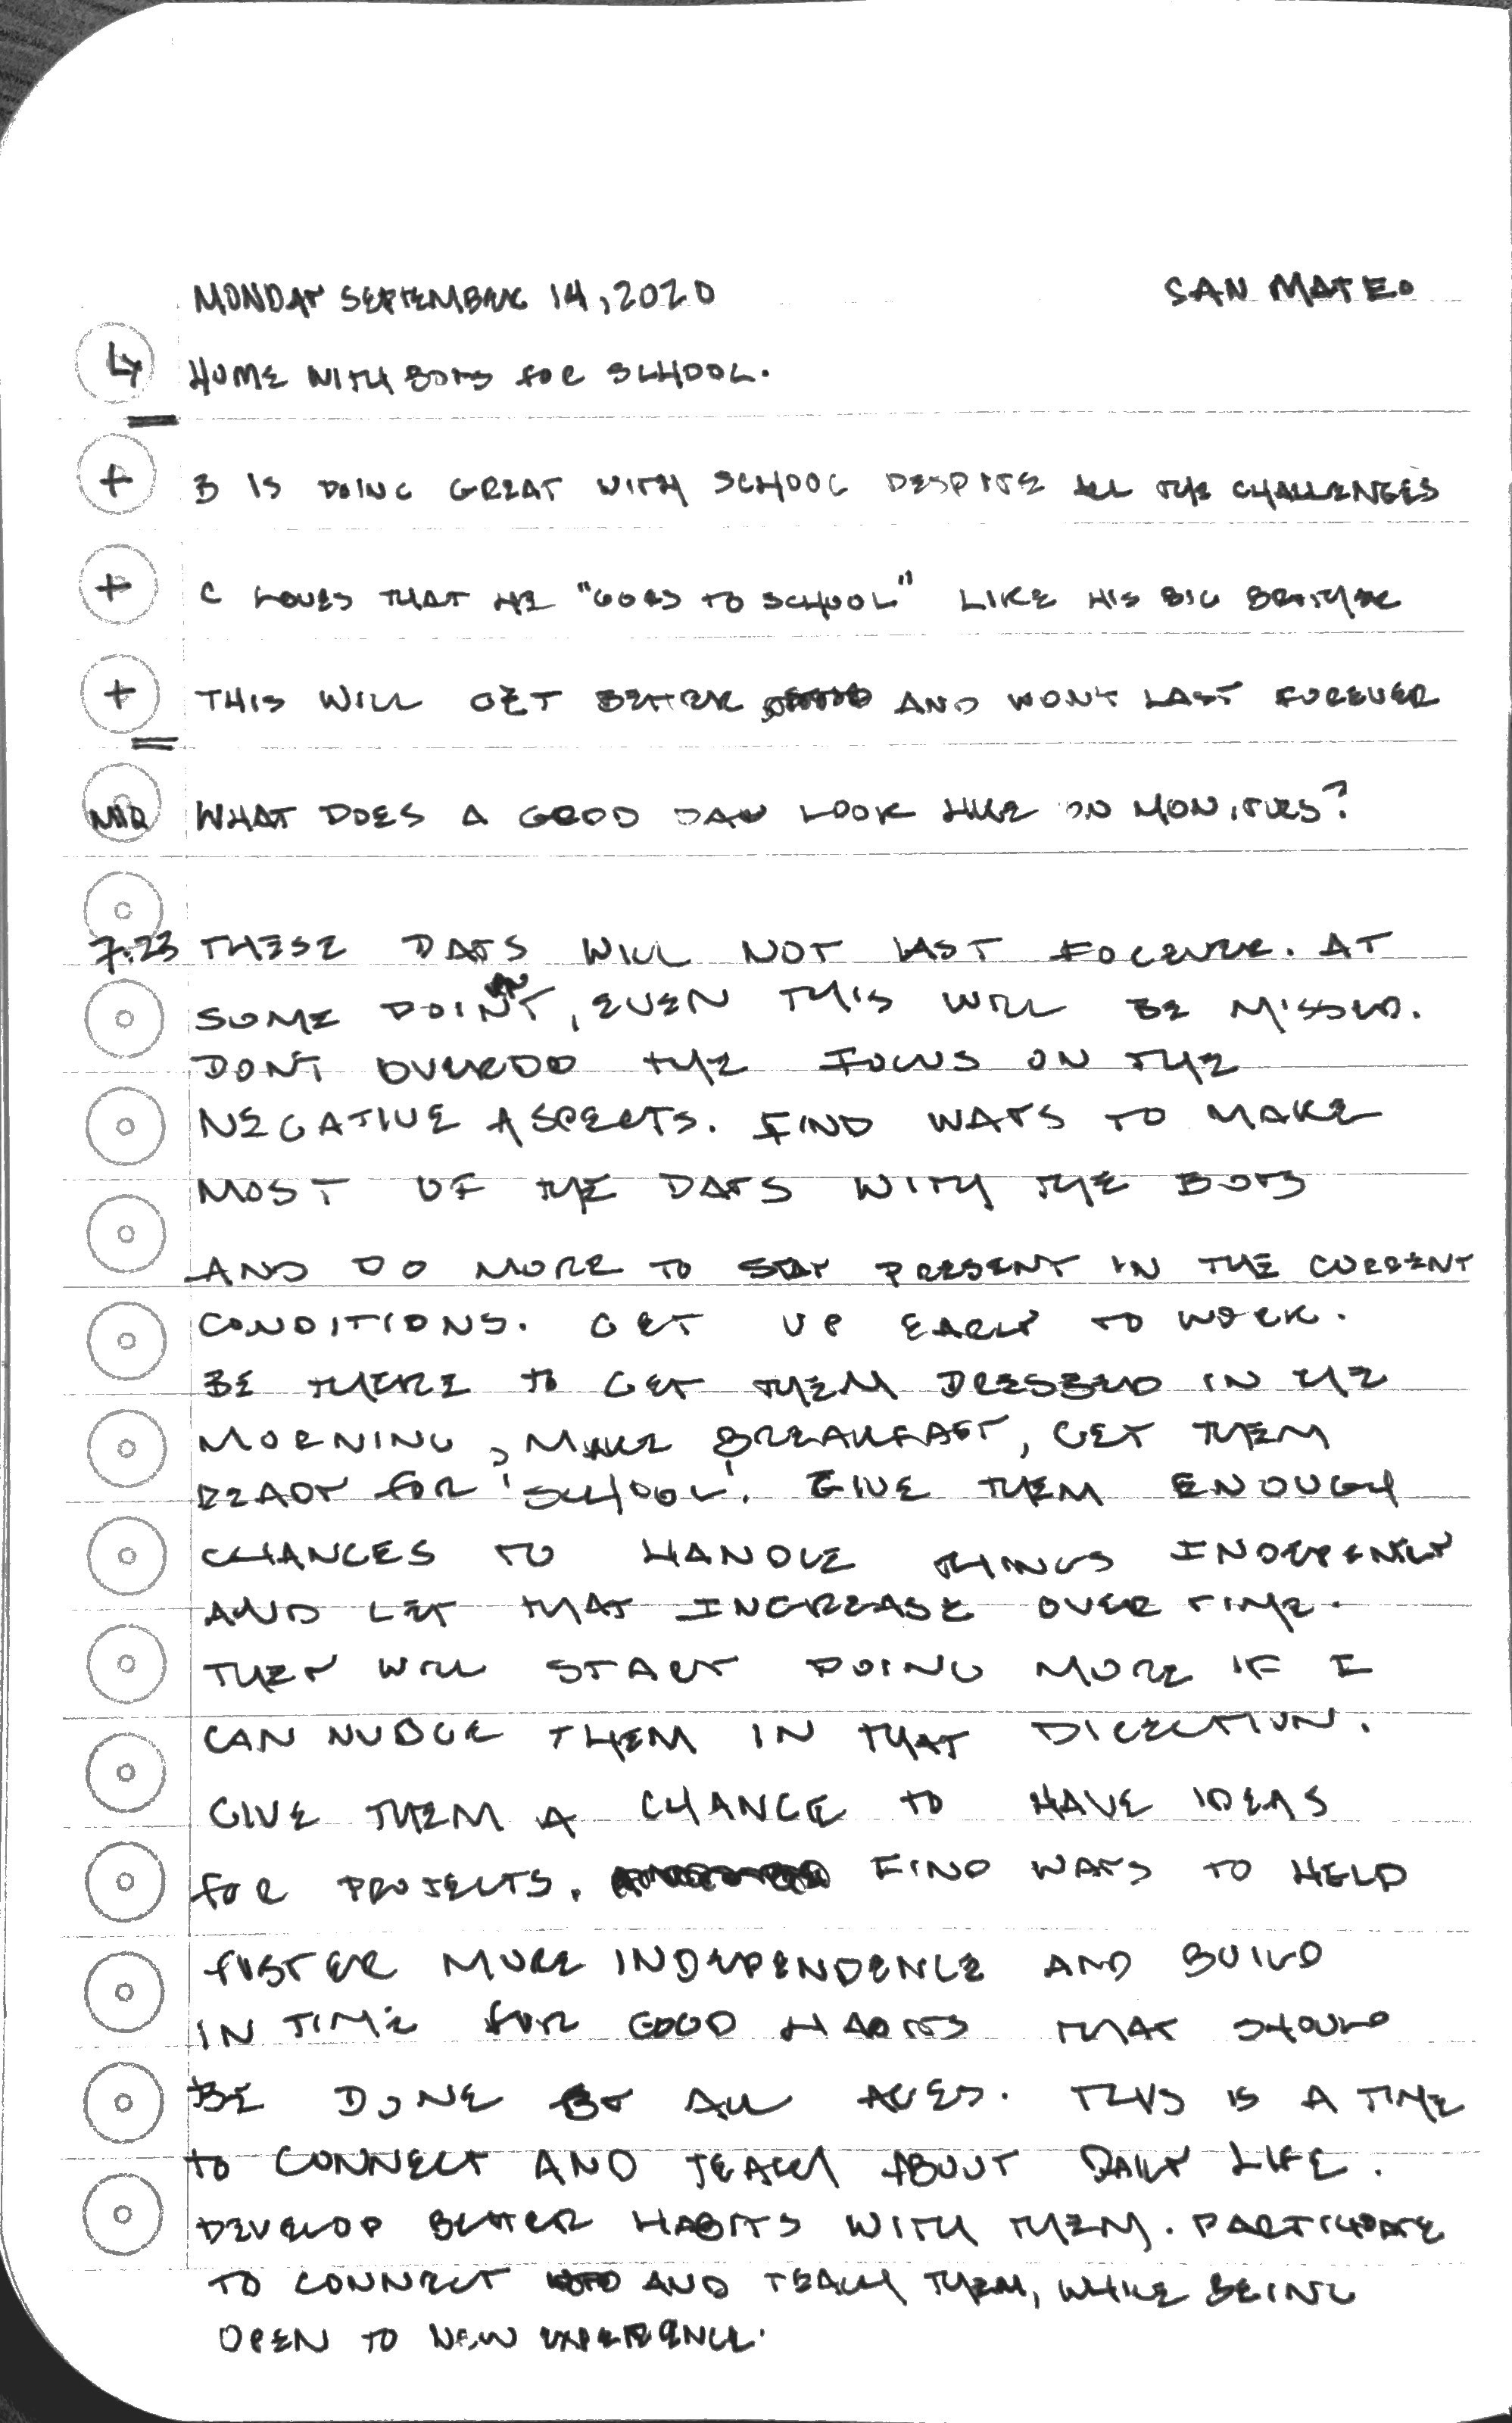 MONDAY SEPTEMBER 14, 2020 SAN MATEO
↳ HOME WITH BOYS FOR SCHOOL.
+ B IS DOING GREAT WITH SCHOOL DESPITE ALL THE CHALLENGES
+ C LOVES THAT HE "GOES TO SCHOOL" LIKE HIS BIG BROTHER
+ THIS WILL GET BETTER AND WONT LAST FOREVER
WHAT DOES A GOOD DAY LOOK LIKE ON MONITORS?
7:23 THESE DAYS WILL NOT LAST FOREVER. AT
SOME POINT, EVEN THIS WILL BE MISSED.
DON'T OVERDO THE FOCUS ON THE
NEGATIVE ASPECTS. FIND WAYS TO MAKE
MOST OF THE DAYS WITH THE BOYS
AND DO MORE TO STAY PRESENT IN THE CURRENT
CONDITIONS. GET UP EARLY TO WORK.
BE THERE TO GET THEM DRESSED IN THE
MORNING, MAKE BREAKFAST, GET THEM
READY FOR 'SCHOOL'. GIVE THEM ENOUGH
CHANCES TO HANDLE THINGS INDEPENTLY
AND LET THAT INCREASE OVER TIME.
THEY WILL START DOING MORE IF I
CAN NUDGE THEM IN THAT DIRECTION.
GIVE THEM A CHANCE TO HAVE IDEAS
FOR PROJECTS. FIND WAYS TO HELP
FOSTER MORE INDEPENDENCE AND BUILD
IN TIME FOR GOOD HABITS THAT SHOULD
BE DONE BY ALL AGES. THIS IS A TIME
TO CONNECT AND TEACH ABOUT DAILY LIFE.
DEVELOP BETTER HABITS WITH THEM. PARTICIPATE
TO CONNECT AND TEACH THEM, WHILE BEING
OPEN TO NEW EXPERIENCE.